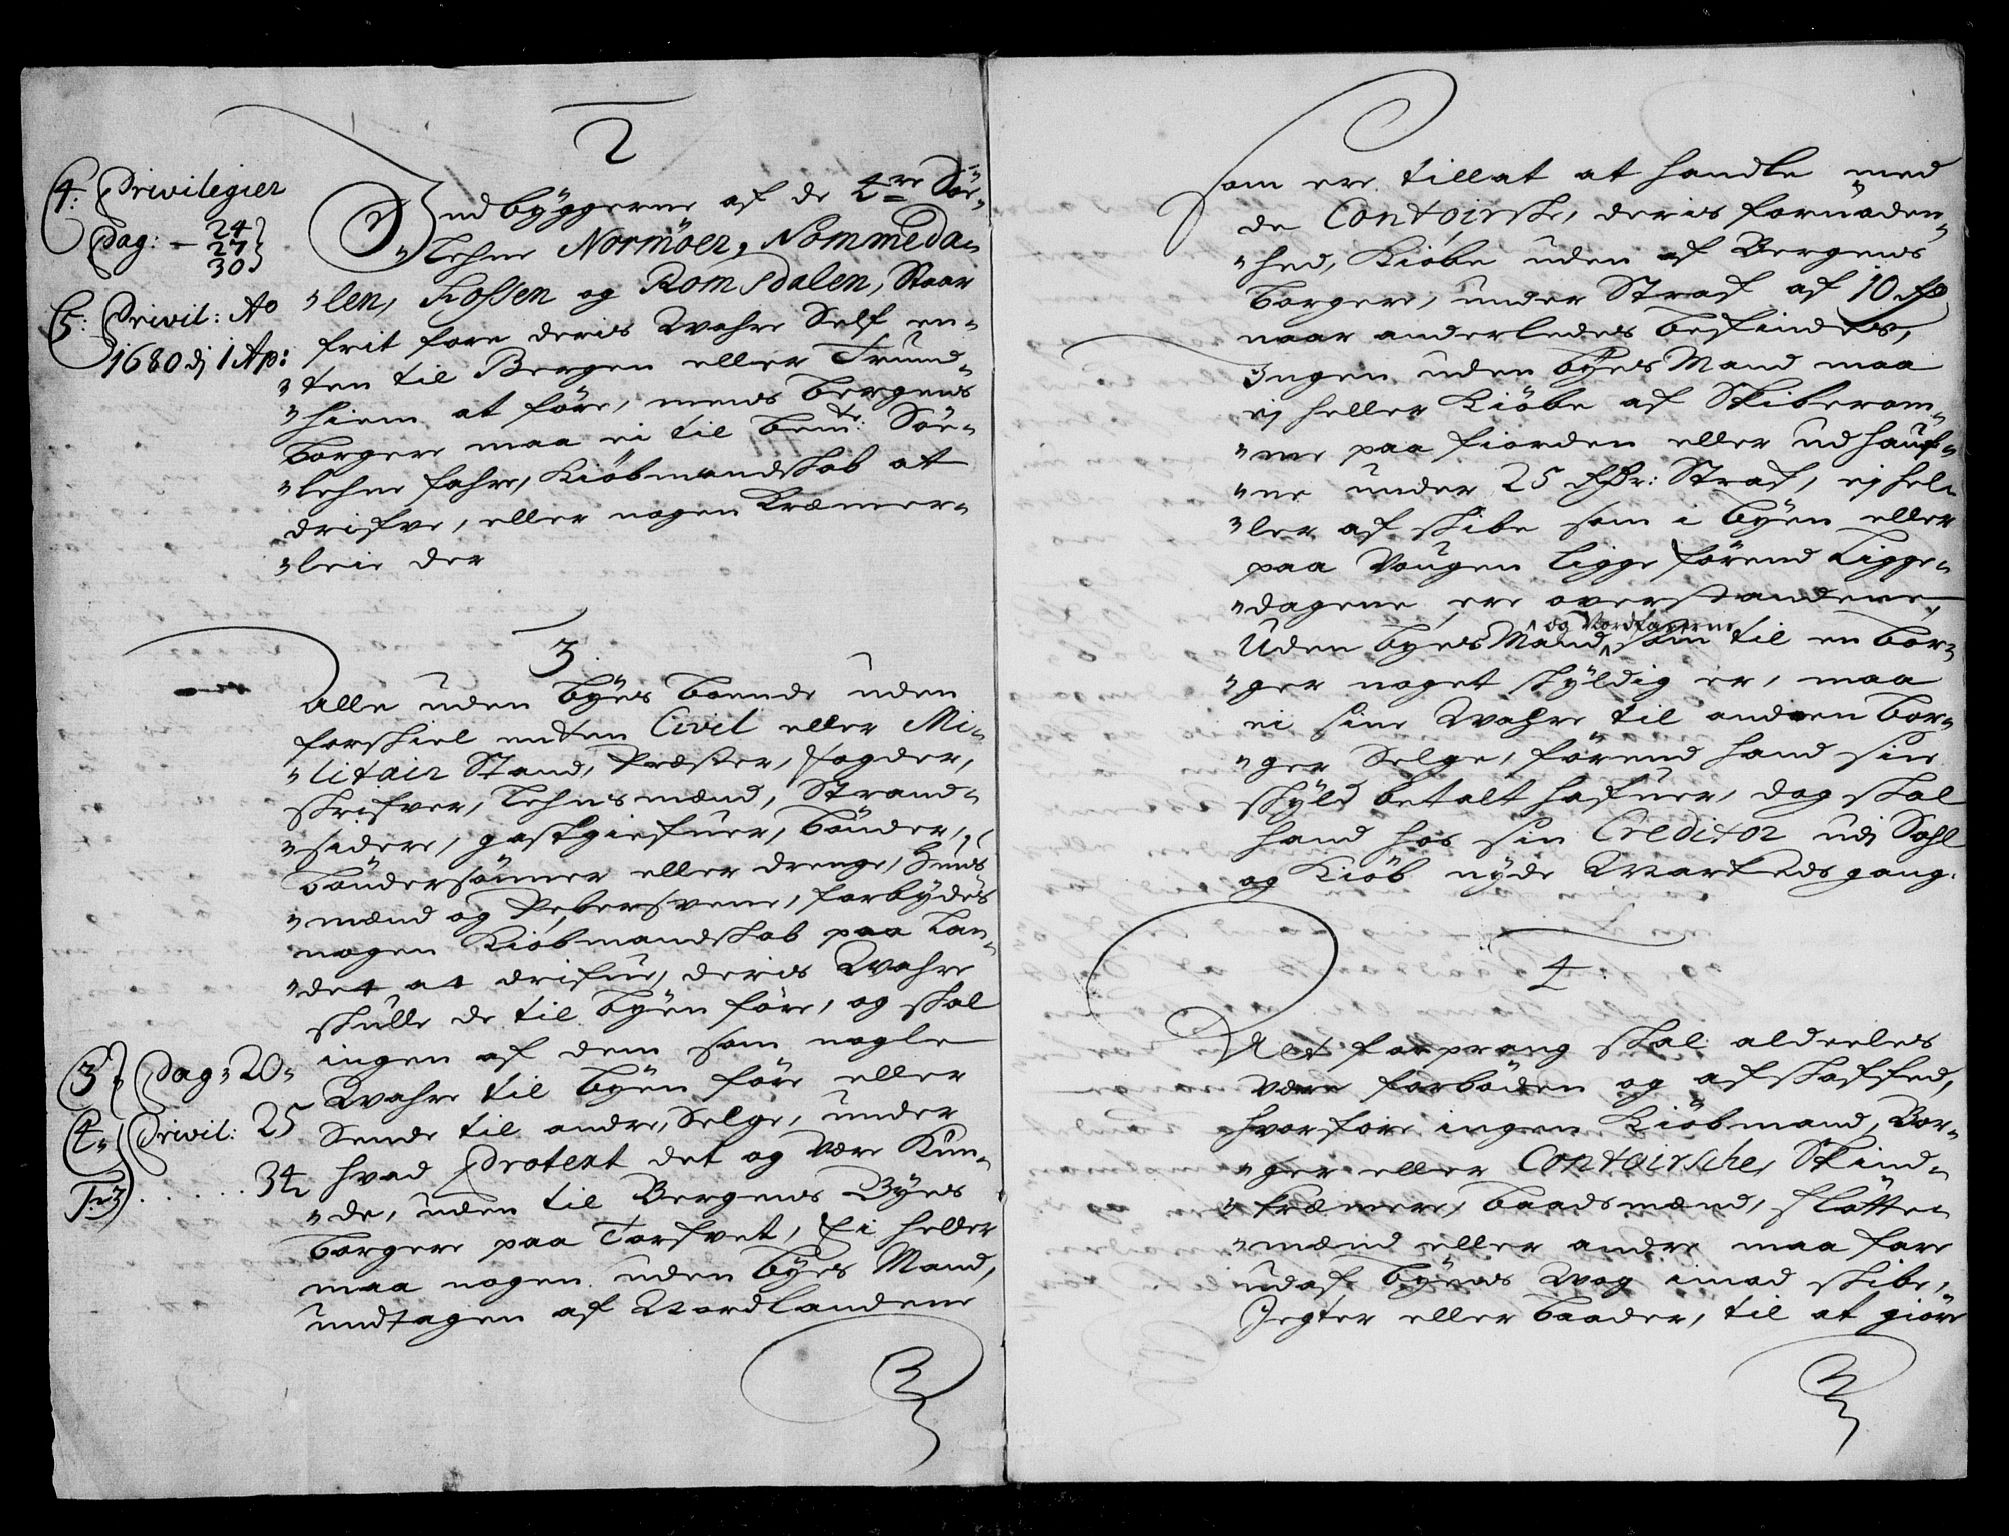 2
4: Privilegier
Pag: - 24
27
30
5: Privil: Ao
1680 dj 1 Ap:
Indbÿggerne af de 4re Söe-
"lehne Normöer, Nommeda-
"len, Fossen og Romsdalen, Staar
frit fore deris Wahre Self en-
"ten til Bergen eller Trund-
"hiem at före, mens Bergens
borgere maa ei til bemte: Söe-
"lehne fahre, Kiöbmandskab at
drifve, eller nogen Kræmer-
"leie der
3.
Alle uden Byes boende uden
forskiel endten Civil eller Mi-
"litair Stand, Præster, Fogder,
skrifver, Lehnsmænd, Strand-
"sidere, gestgiefuer, bönder,
bönder sönner eller drenge, Huus
"mænd og Pebersvene, forbydes
nogen Kiöbmandskab paa Lan-
"det at drifue, deris Wahre
skulle de til byen före, og skal
ingen af dem som nogle
Wahre til byen före eller
Sende til andre, Selge, under
hvad Protext det og være Kun-
"de, uden til Bergens Byes
borgere paa Torfvet, Ei heller
maa nogen uden Byes Mand,
undtagen af Nordlandene
3: Pag: 20-
4: Privil: 25
34
som ere tillat at handle med
de Contoirske, deris fornöden-
"hed, Kiöbe uden af Bergens
borgere, under Straf af 10 rd
naar anderledes befindes,
Ingen uden Byes Mand maa
ej heller Kiöbe af Skiberom-
"me paa fiorden eller udhauf-
"ne under 25 rdr: Straf, ej hel-
"ler af skibe som i byen eller
paa Vougen ligge förend Ligge-
"dagene ere overstandene,
og Nordfarerne
Uden byes Mand som til en bor-
"ger noget skÿldig er, maa
ei sine Wahre til anden bor-
"ger Selge, förend hand sin
skÿld betalt hafuer, dog skal
hand hos sin Creditor udj Sahl
og Kiöb nyde Markedsgang.
4.
Alt forprang skal aldeeles
være forböden og afskaffed,
hvorfore ingen Kiöbmand, Bor-
"ger eller Contoirsche, Skind-
"kræmere, baadsmænd, Flötte-
"mænd eller andre maa fare
udaf byens Vog imod skibe,
Jegter eller baader, til at giöre